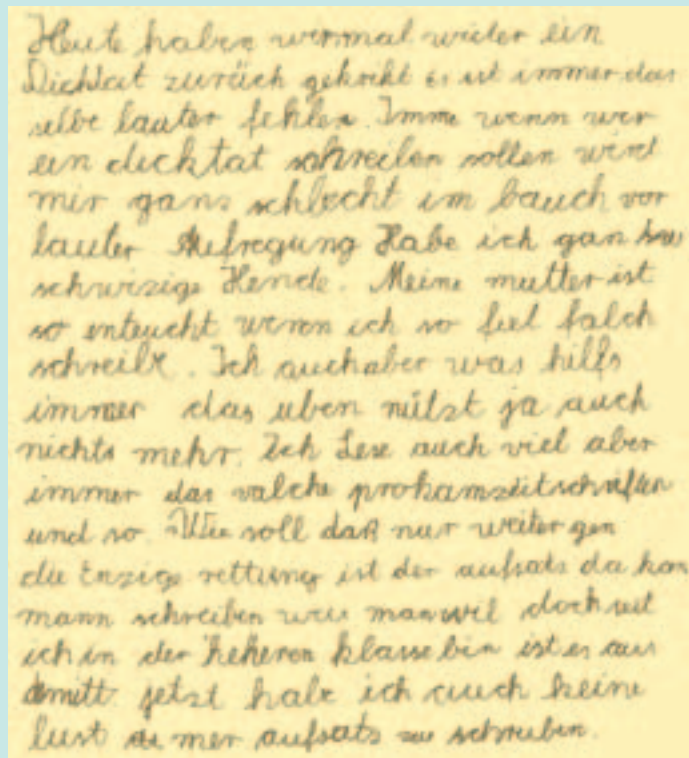 Heute haben wirmal wieter ein
Dicktat zurück gekrikt Es ist immer das
selbe lauter fehler. Imme wenn wir
ein dicktat schreiben sollen wird
mir gans schlecht im bauch vor
lauter Aufregung Habe ich gan
schwizige Hende. Meine mutter ist
so enteucht wenn ich so fiel falch
schreibe. Ich auchaber was hilfs
immer das uben nützt ja auch
nichts mehr. Ich Lese auch viel aber
immer das valche prokamzeitschriften
und so. Wie soll daß nur weiter gen
die Enzige rettung ist der aufsats da kan
mann schreiben wie manwil doch seit
ich in der heheren klasse bin ist es aus
damitt. jetzt habe ich auch keine
lust mer aufsats zu schreiben.